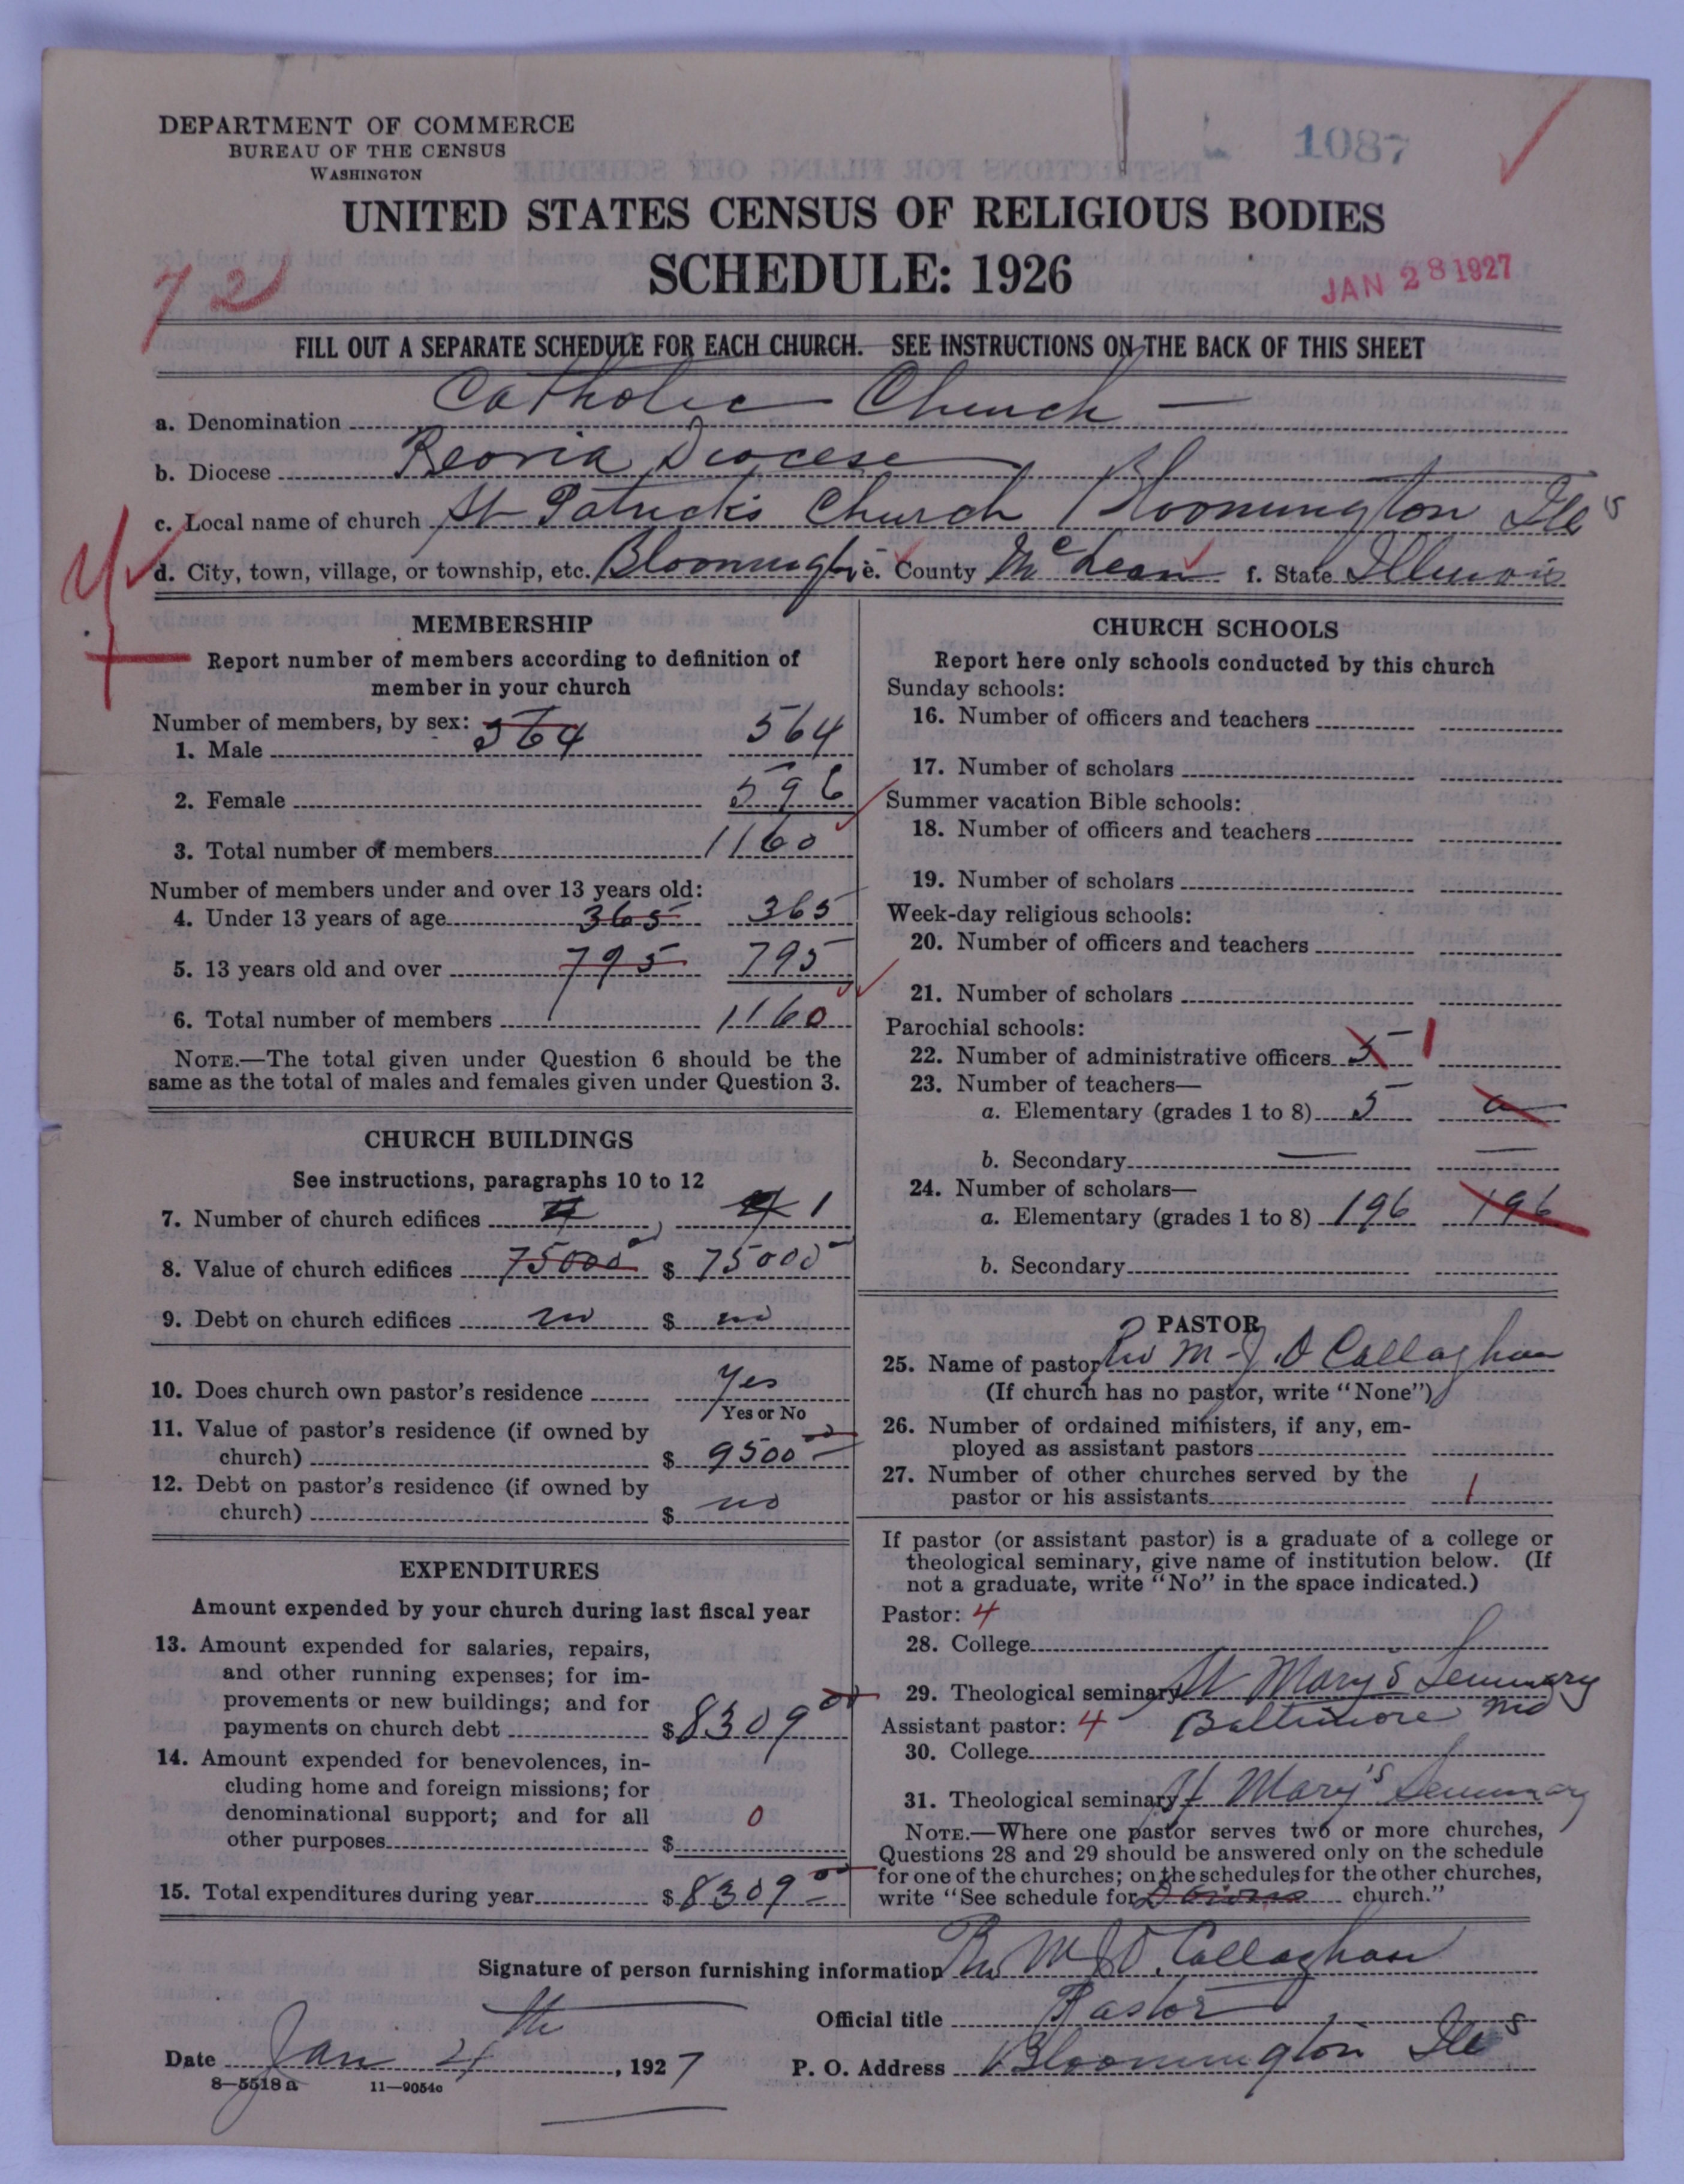 DEPARTMENT OF COMMERCE
BUREAU OF THE CENSUS
WASHINGTON
1087
UNITED STATES CENSUS OF RELIGIOUS BODIES
SCHEDULE: 1926
JAN 28 1927
72
FILL OUT A SEPARATE SCHEDULE FOR EACH CHURCH. SEE INSTRUCTIONS ON THE BACK OF THIS SHEET
a. Denomination Catholic Church
b. Diocese Peoria Diocese
c. Local name of church St Patricks Church Bloomington Ills
d. City, town, village, or township, etc. Bloomington e. County McLean f. State Illinois
MEMBERSHIP
Report number of members according to definition of
member in your church
Number of members, by sex:
1. Male 564 564
2. Female 596
3. Total number of members 1160
Number of members under and over 13 years old:
4. Under 13 years of age 365 365
5. 13 years old and over 795 795
6. Total number of members 1160
NOTE.—The total given under Question 6 should be the
same as the total of males and females given under Question 3.
CHURCH BUILDINGS
See instructions, paragraphs 10 to 12
7. Number of church edifices 1
8. Value of church edifices 75000 $ 75000
9. Debt on church edifices no $ no
10. Does church own pastor's residence Yes
Yes or No
11. Value of pastor's residence (if owned by
church) $ 9500 00
12. Debt on pastor's residence (if owned by
church) $ no
EXPENDITURES
Amount expended by your church during last fiscal year
13. Amount expended for salaries, repairs,
and other running expenses; for im-
provements or new buildings; and for
payments on church debt $ 8309 00
14. Amount expended for benevolences, in-
cluding home and foreign missions; for
denominational support; and for all
other purposes $ 0
15. Total expenditures during year $ 8309 00
CHURCH SCHOOLS
Report here only schools conducted by this church
Sunday schools:
16. Number of officers and teachers
17. Number of scholars
Summer vacation Bible schools:
18. Number of officers and teachers
19. Number of scholars
Week-day religious schools:
20. Number of officers and teachers
21. Number of scholars
Parochial schools:
22. Number of administrative officers 5 1
23. Number of teachers—
a. Elementary (grades 1 to 8) 5
b. Secondary
24. Number of scholars—
a. Elementary (grades 1 to 8) 196 196
b. Secondary
PASTOR
25. Name of pastor Rev M. J. O Callaghan
(If church has no pastor, write "None")
26. Number of ordained ministers, if any, em-
ployed as assistant pastors
27. Number of other churches served by the
pastor or his assistants 1
If pastor (or assistant pastor) is a graduate of a college or
theological seminary, give name of institution below. (If
not a graduate, write "No" in the space indicated.)
Pastor: 4
28. College
29. Theological seminary St Mary's Seminary
Assistant pastor: 4 Baltimore Md
30. College
31. Theological seminary St Mary's Seminary
NOTE.—Where one pastor serves two or more churches,
Questions 28 and 29 should be answered only on the schedule
for one of the churches; on the schedules for the other churches,
write "See schedule for church."
Signature of person furnishing information Rev M J O'Callaghan
Official title Pastor
Date Jan 21th, 1927 P. O. Address Bloomington Ills
8—5518 a 11—9054c